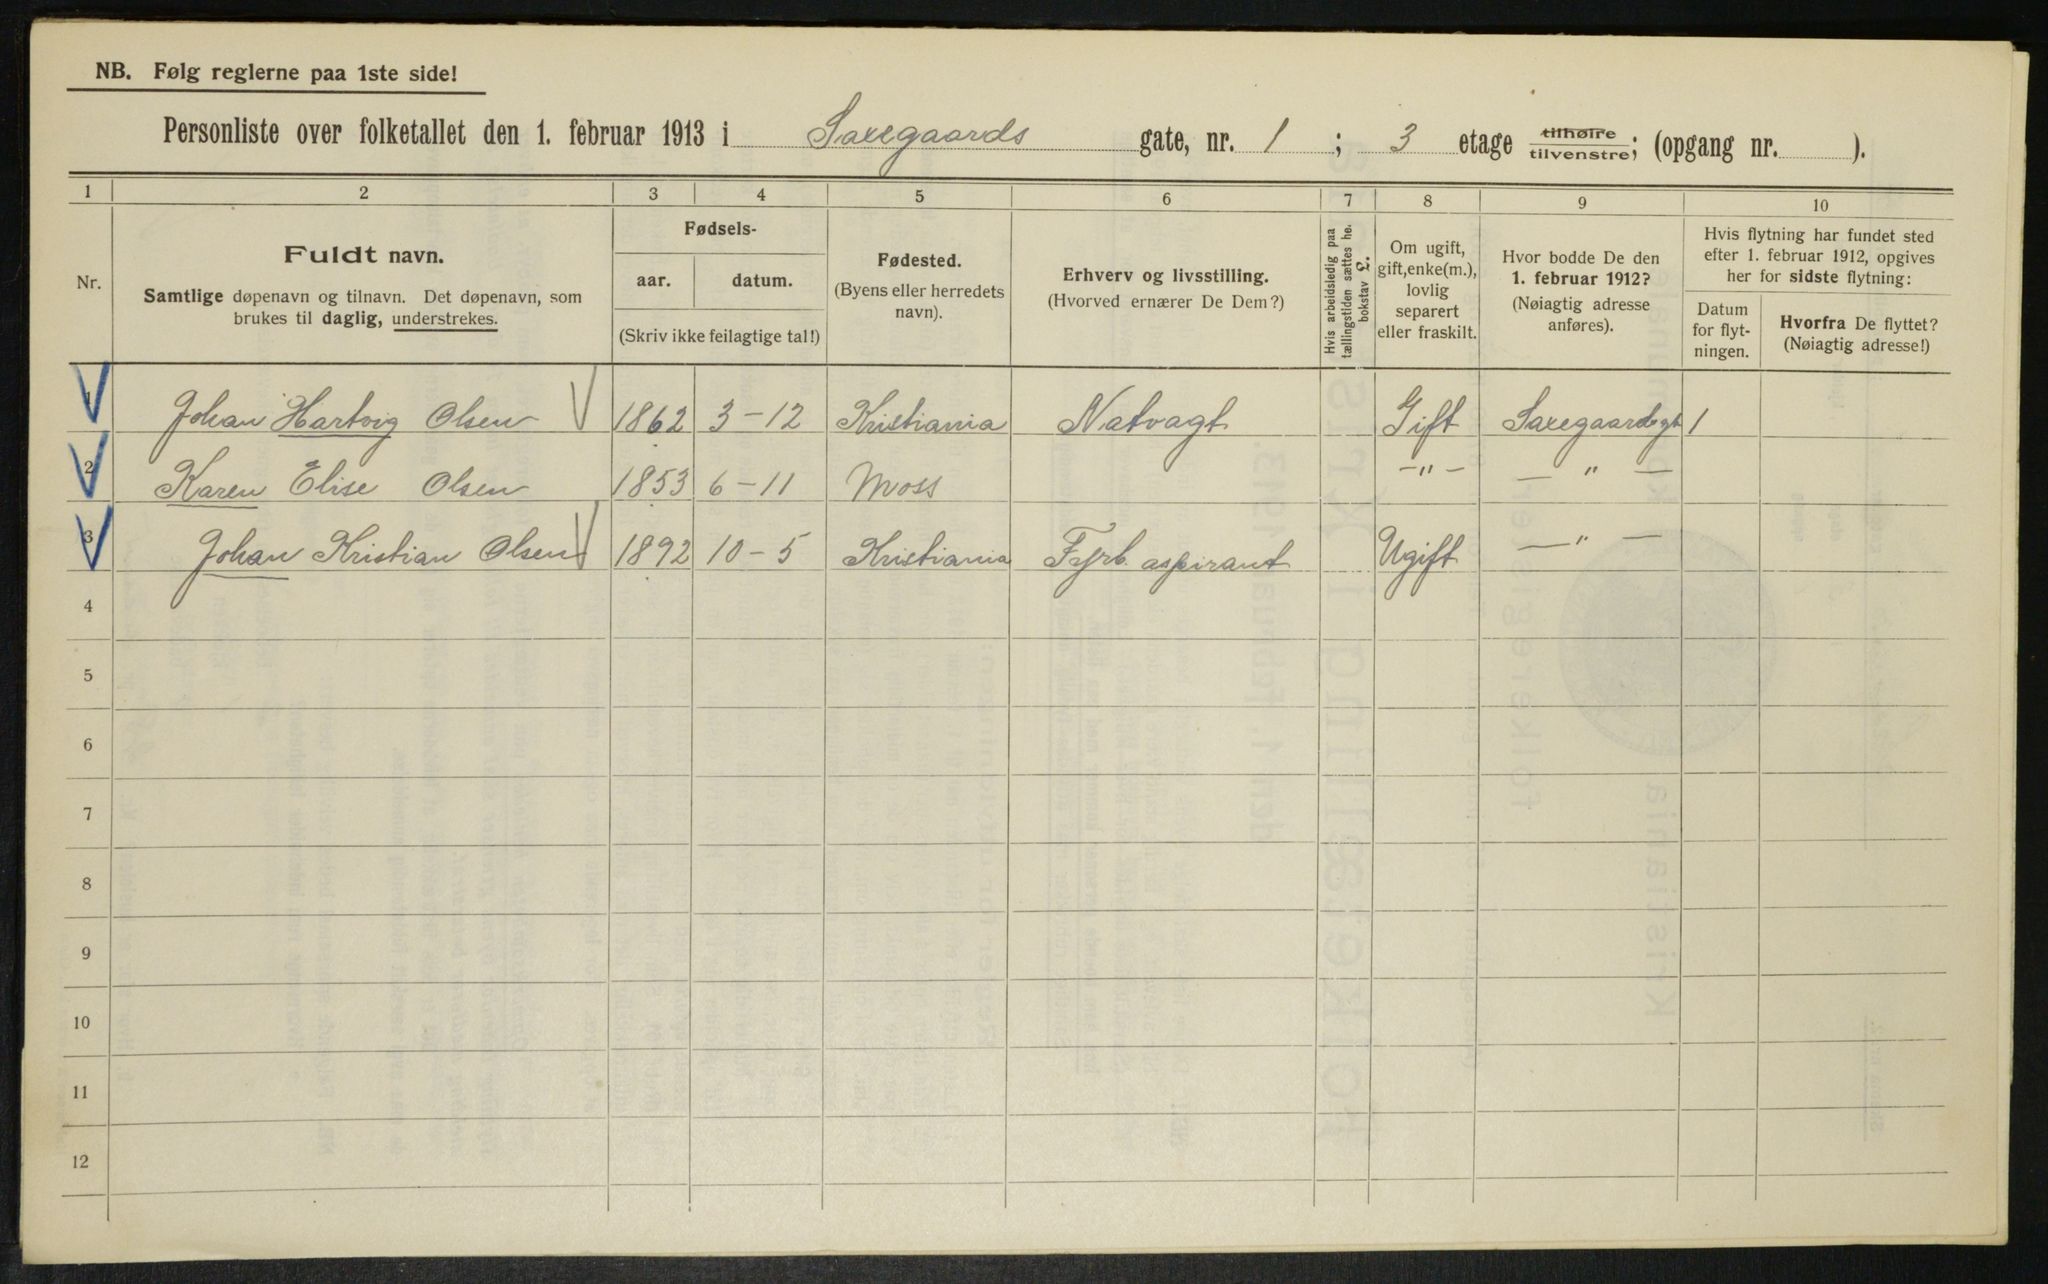 NB. Følg reglerne paa 1ste side!
Personliste over folketallet den 1. februar 1913 i Saxegaards gate, nr. 1 ; 3 etage tilhøire tilvenstre; (opgang nr. ).
1 2 3 4 5 6 7 8 9 10
Nr.
Fuldt navn.
Samtlige døpenavn og tilnavn. Det døpenavn, som
brukes til daglig, understrekes.
Fødsels-
aar. datum.
(Skriv ikke feilagtige tal!)
Fødested.
(Byens eller herredets
navn).
Erhverv og livsstilling.
(Hvorved ernærer De Dem?)
Hvis arbeidsledig paa
tællingstiden sættes he.
bokstav L.
Om ugift,
gift, enke(m.),
lovlig
separert
eller fraskilt.
Hvor bodde De den
1. februar 1912?
(Nøiagtig adresse
anføres).
Hvis flytning har fundet sted
efter 1. februar 1912, opgives
her for sidste flytning:
Datum
for flyt-
ningen.
Hvorfra De flyttet?
(Nøiagtig adresse!)
1 Johan Hartvig Olsen 1862 3-12 Kristiania Natvagt Gift Saxegaardsgt 1
2 Karen Elise Olsen 1853 6-11 Moss -"- - " -
3 Johan Kristian Olsen 1892 10-5 Kristiania Fyrb. aspirant Ugift - " -
4
5
6
7
8
9
10
11
12